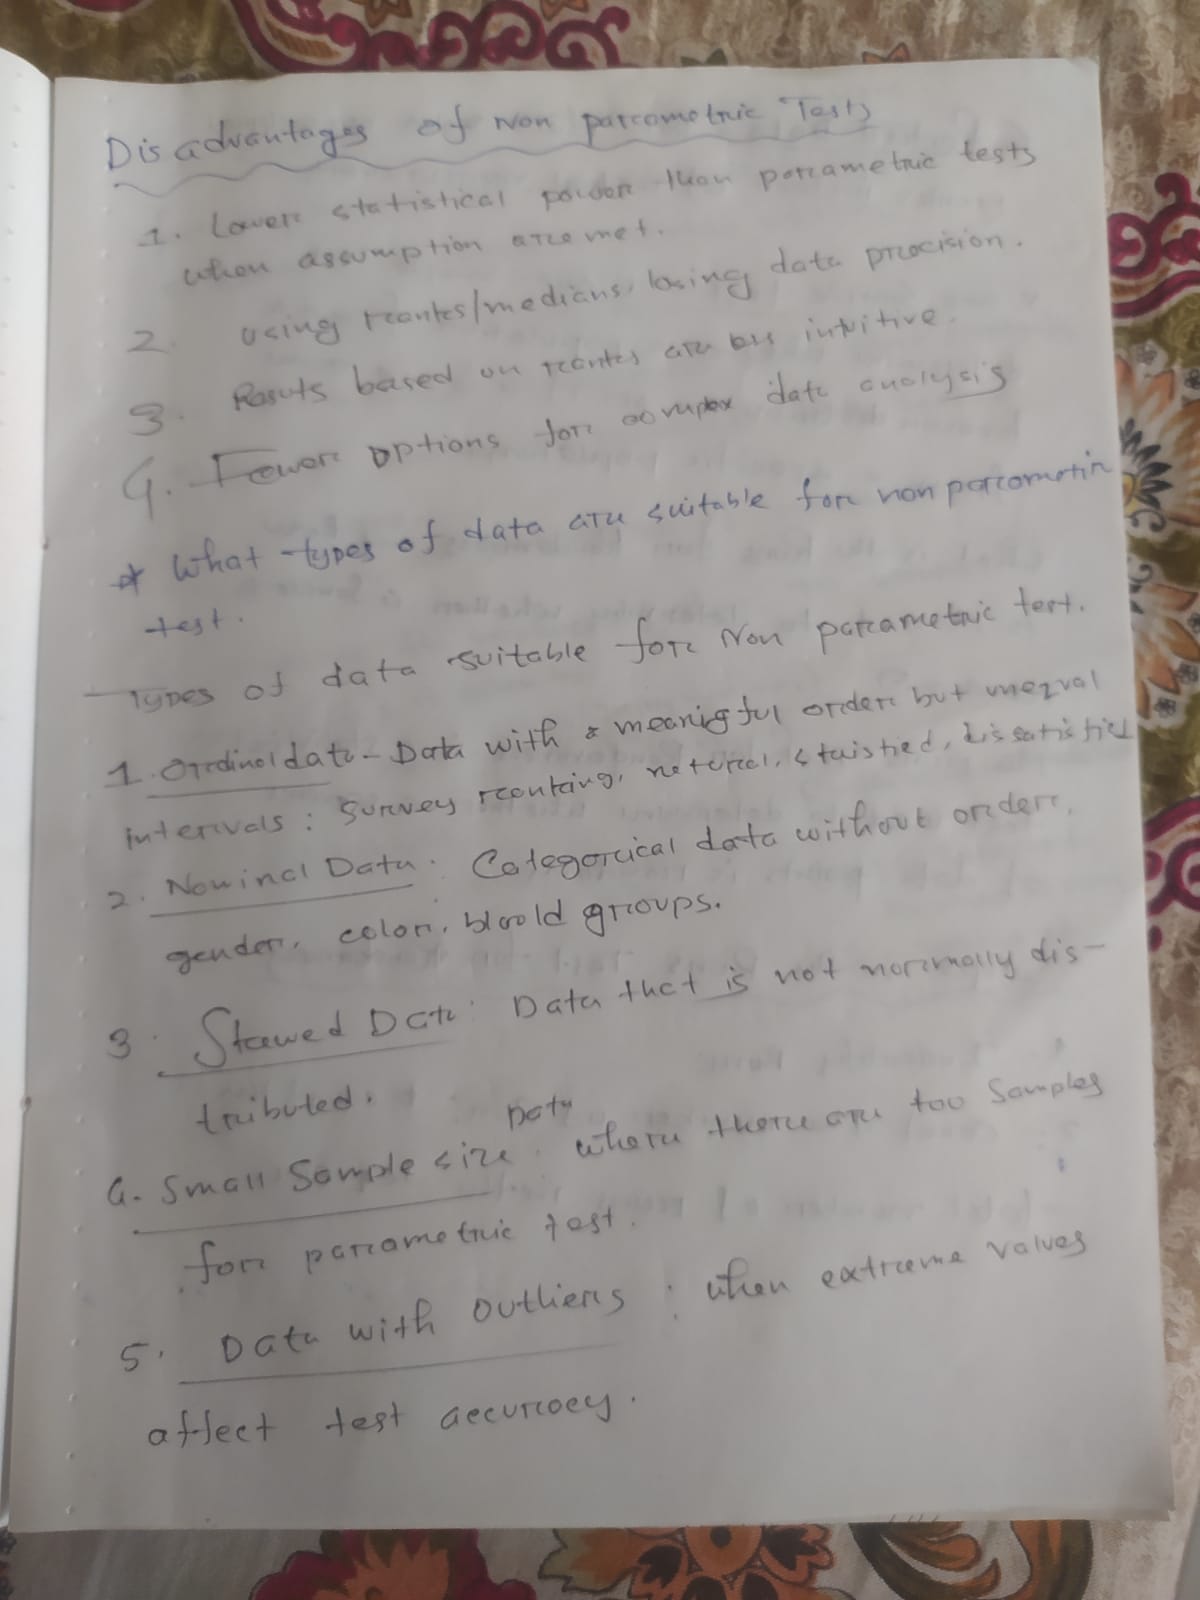 Disadvantages of Non parametric Tests
1. Lower statistical power than parametric tests
when assumption are met.
2. Using ranks/medians, losing data precision.
3. Resuts based on ranks are less intuitive.
4. Fewer options for complex data analysis
* What types of data are suitable for non parametric
test.
Types of data suitable for Non parametric test.
1. Ordinal data - Data with a meanigful order but unequal
intervals : Survey ranking, netural, staistied, dissatistied
2. Nominal Data : Categorical data without order.
gender, color, bloold groups.
3. Skewed Data : Data that is not normally dis-
tributed.
Data
4. Small Sample size . where there are too Samples
for parametric test.
5. Data with outliers : when extreme values
affect test accuracy.